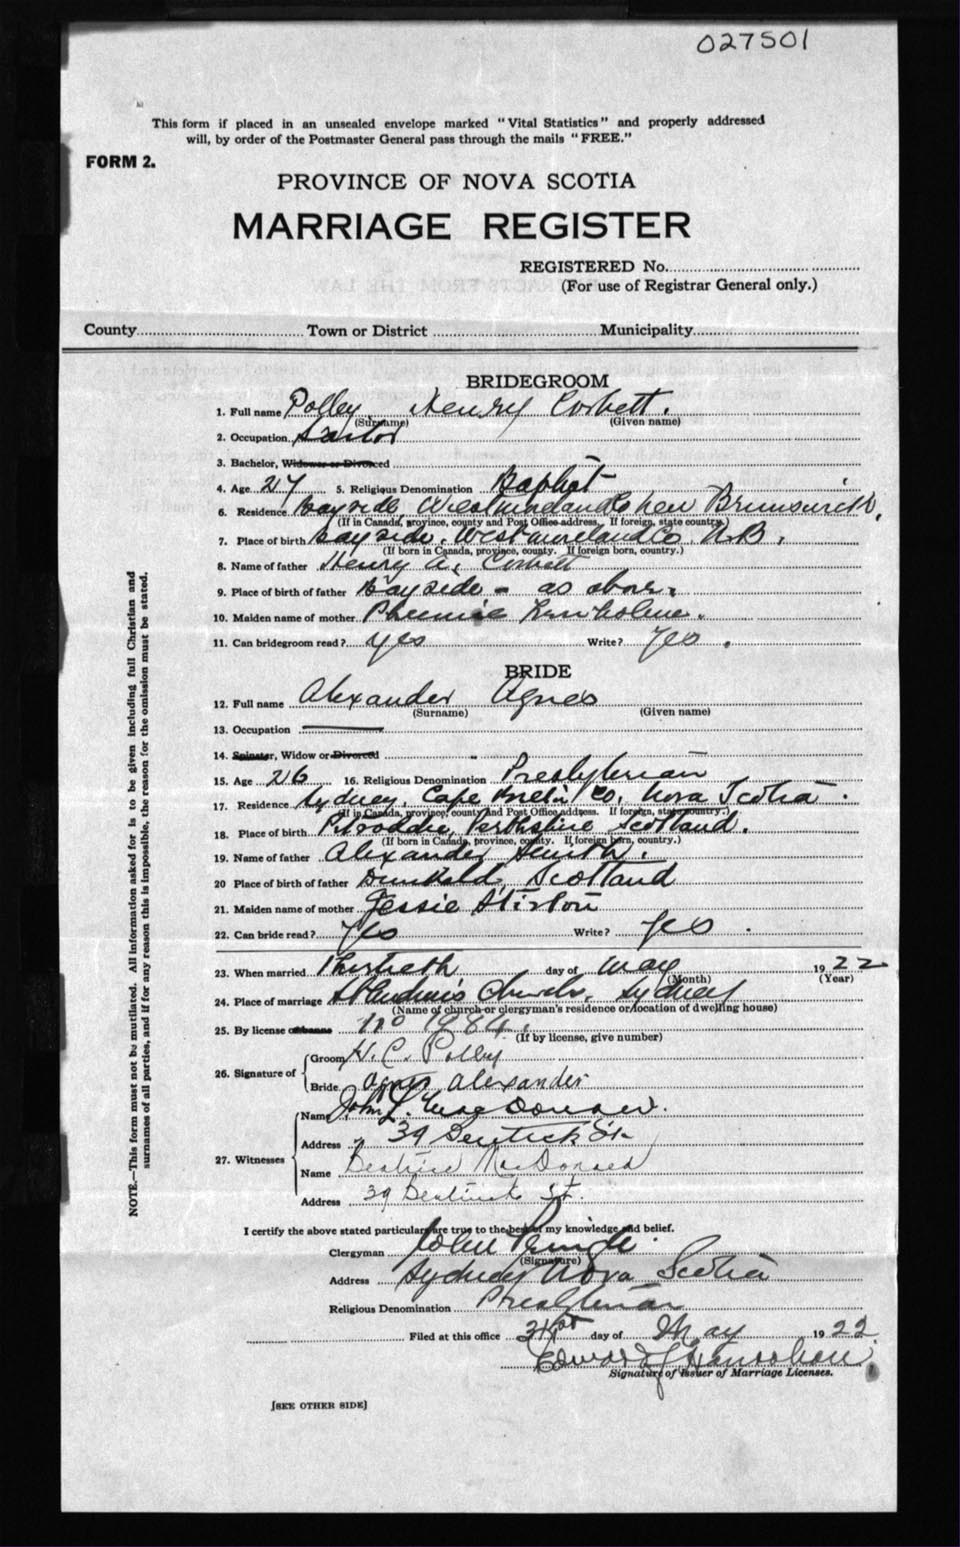 027501
This form if placed in an unsealed envelope marked "Vital Statistics" and properly addressed
will, by order of the Postmaster General pass through the mails "FREE."
FORM 2.
PROVINCE OF NOVA SCOTIA
MARRIAGE REGISTER
REGISTERED No.
(For use of Registrar General only.)
County Town or District Municipality
BRIDEGROOM
1. Full name Polley Henry Corbett.
(Surname) (Given name)
2. Occupation
3. Bachelor, Widower or Divorced
4. Age 27 5. Religious Denomination Baptist
6. Residence Bayside, Westmoreland Co New Brunswick,
(If in Canada, province, county and Post Office address. If foreign, state country.)
7. Place of birth Bayside, Westmoreland Co N.B.
(If born in Canada, province, county. If foreign born, country.)
8. Name of father Henry A. Corbett
9. Place of birth of father Bayside - as above.
10. Maiden name of mother
11. Can bridegroom read? yes Write? Yes.
BRIDE
12. Full name Alexander Agnes
(Surname) (Given name)
13. Occupation
14. Spinster, Widow or Divorced
15. Age 26 16. Religious Denomination Presbyterian
17. Residence Sydney, Cape Breton Co, Nova Scotia.
(If in Canada, province, county and Post Office address. If foreign, state country.)
18. Place of birth Perthshire Scotland.
(If born in Canada, province, county. If foreign born, country.)
19. Name of father Alexander Smith.
20 Place of birth of father Dunkeld, Scotland
21. Maiden name of mother Jessie Stirton
22. Can bride read? Yes Write? Yes.
23. When married Thirtieth day of May 1922
(Month) (Year)
24. Place of marriage St Andrew's Church, Sydney
(Name of church or clergyman's residence or location of dwelling house)
25. By license or banns No 1984.
(If by license, give number)
26. Signature of
Groom H. C. Polley
Bride Agnes Alexander
27. Witnesses
Name John L. MacDonald.
Address 39 St.
Name Beatrice MacDonald
Address 39 St.
I certify the above stated particulars are true to the best of my knowledge and belief.
Clergyman John Pringle.
(Signature)
Address Sydney Nova Scotia
Religious Denomination Presbyterian
Filed at this office 31st day of May 1922.
Edward
Signature of Issuer of Marriage Licenses.
[SEE OTHER SIDE]
NOTE.—This form must not be mutilated. All information asked for is to be given including full Christian and
surnames of all parties, and if for any reason this is impossible, the reason for the omission must be stated.